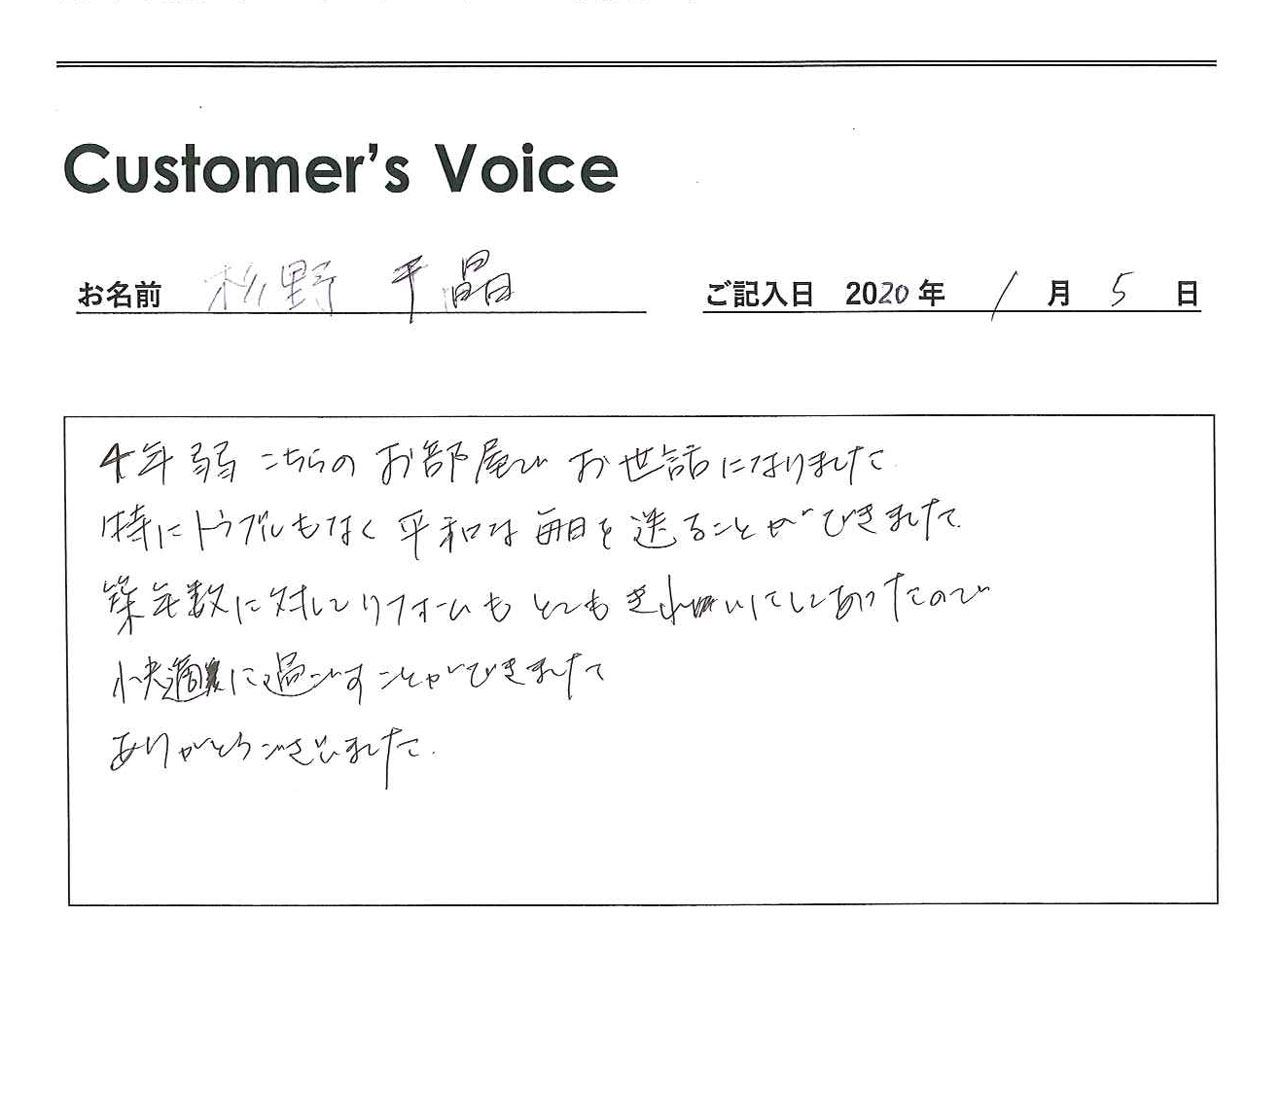 Customer's Voice
お名前 杉野 千晶 ご記入日 2020年 1月 5日
4年弱こちらのお部屋でお世話になりました
特にトラブルもなく平和な毎日を送ることができました
築年数に対してリフォームもとてもきれいにしてあったので
快適に過ごすことができました
ありがとうございました.